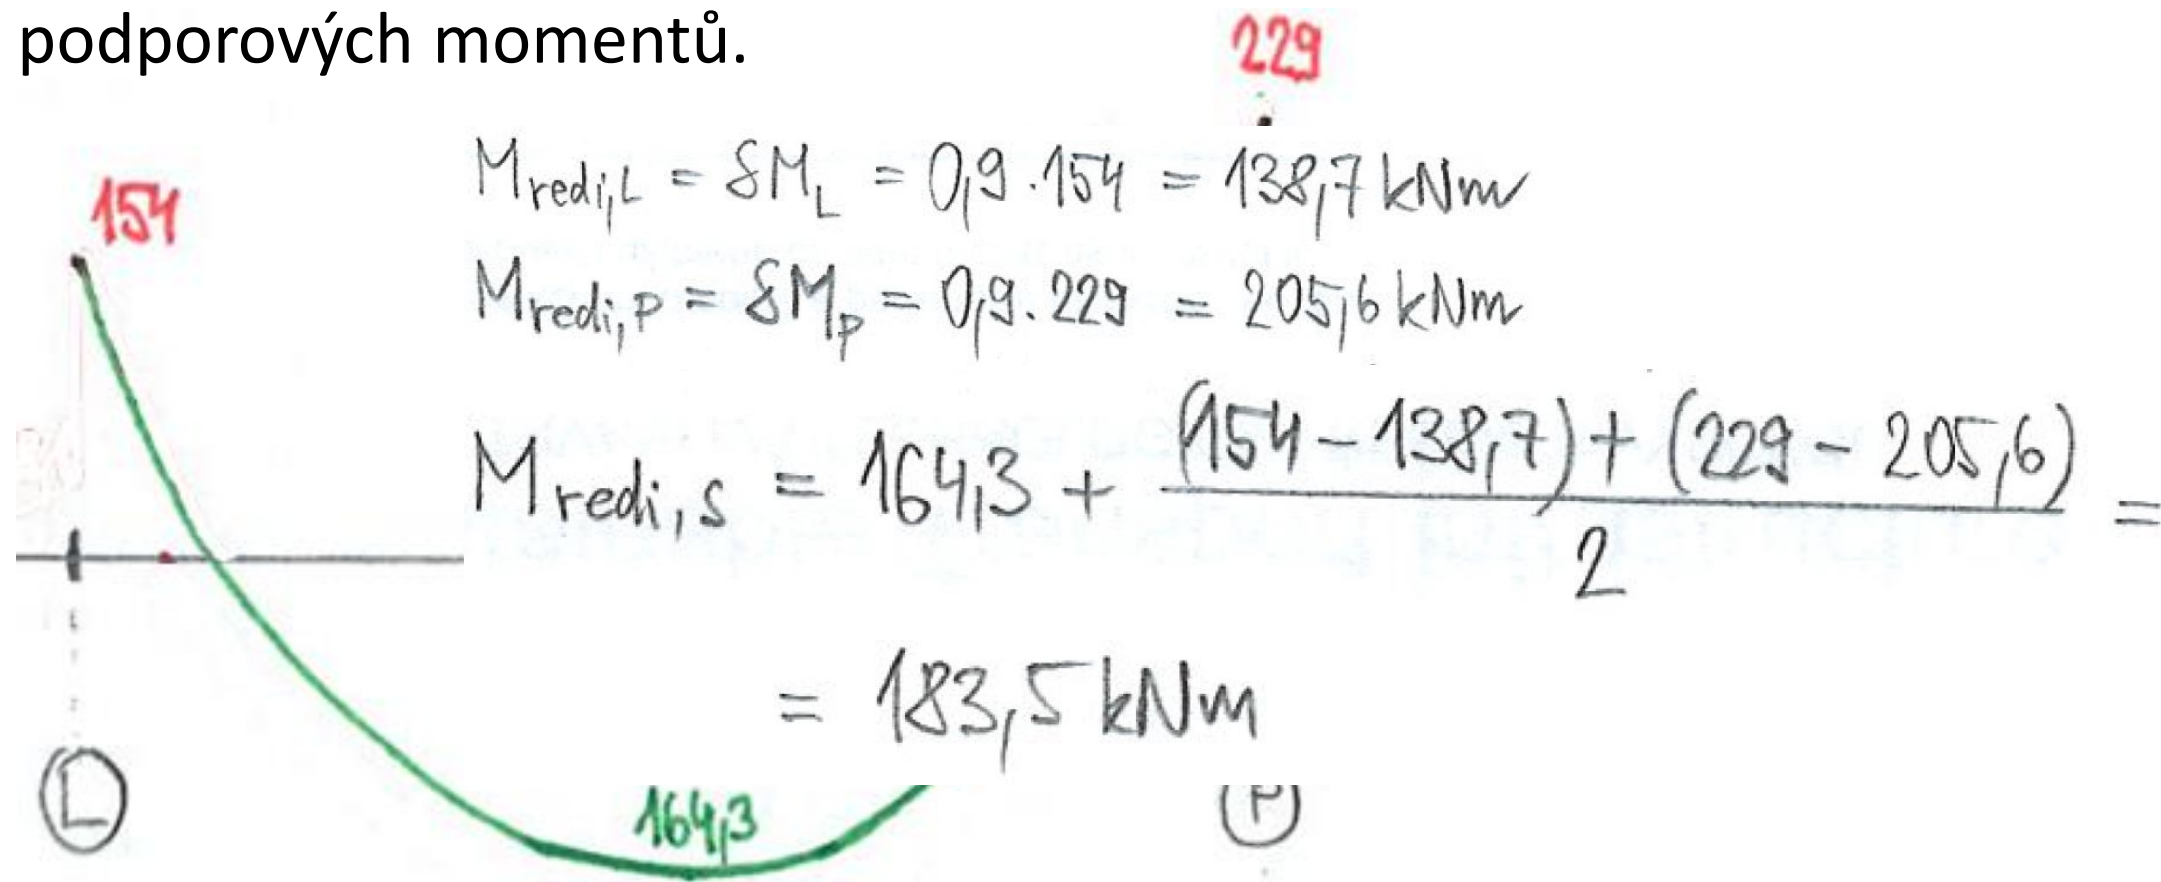 podporových momentů.
229
154
M_redi,L = δM_L = 0,9 . 154 = 138,7 kNm
M_redi,P = δM_P = 0,9 . 229 = 205,6 kNm
M_redi,s = 164,3 + ((154 - 138,7) + (229 - 205,6)) / 2 =
= 183,5 kNm
L
164,3
P